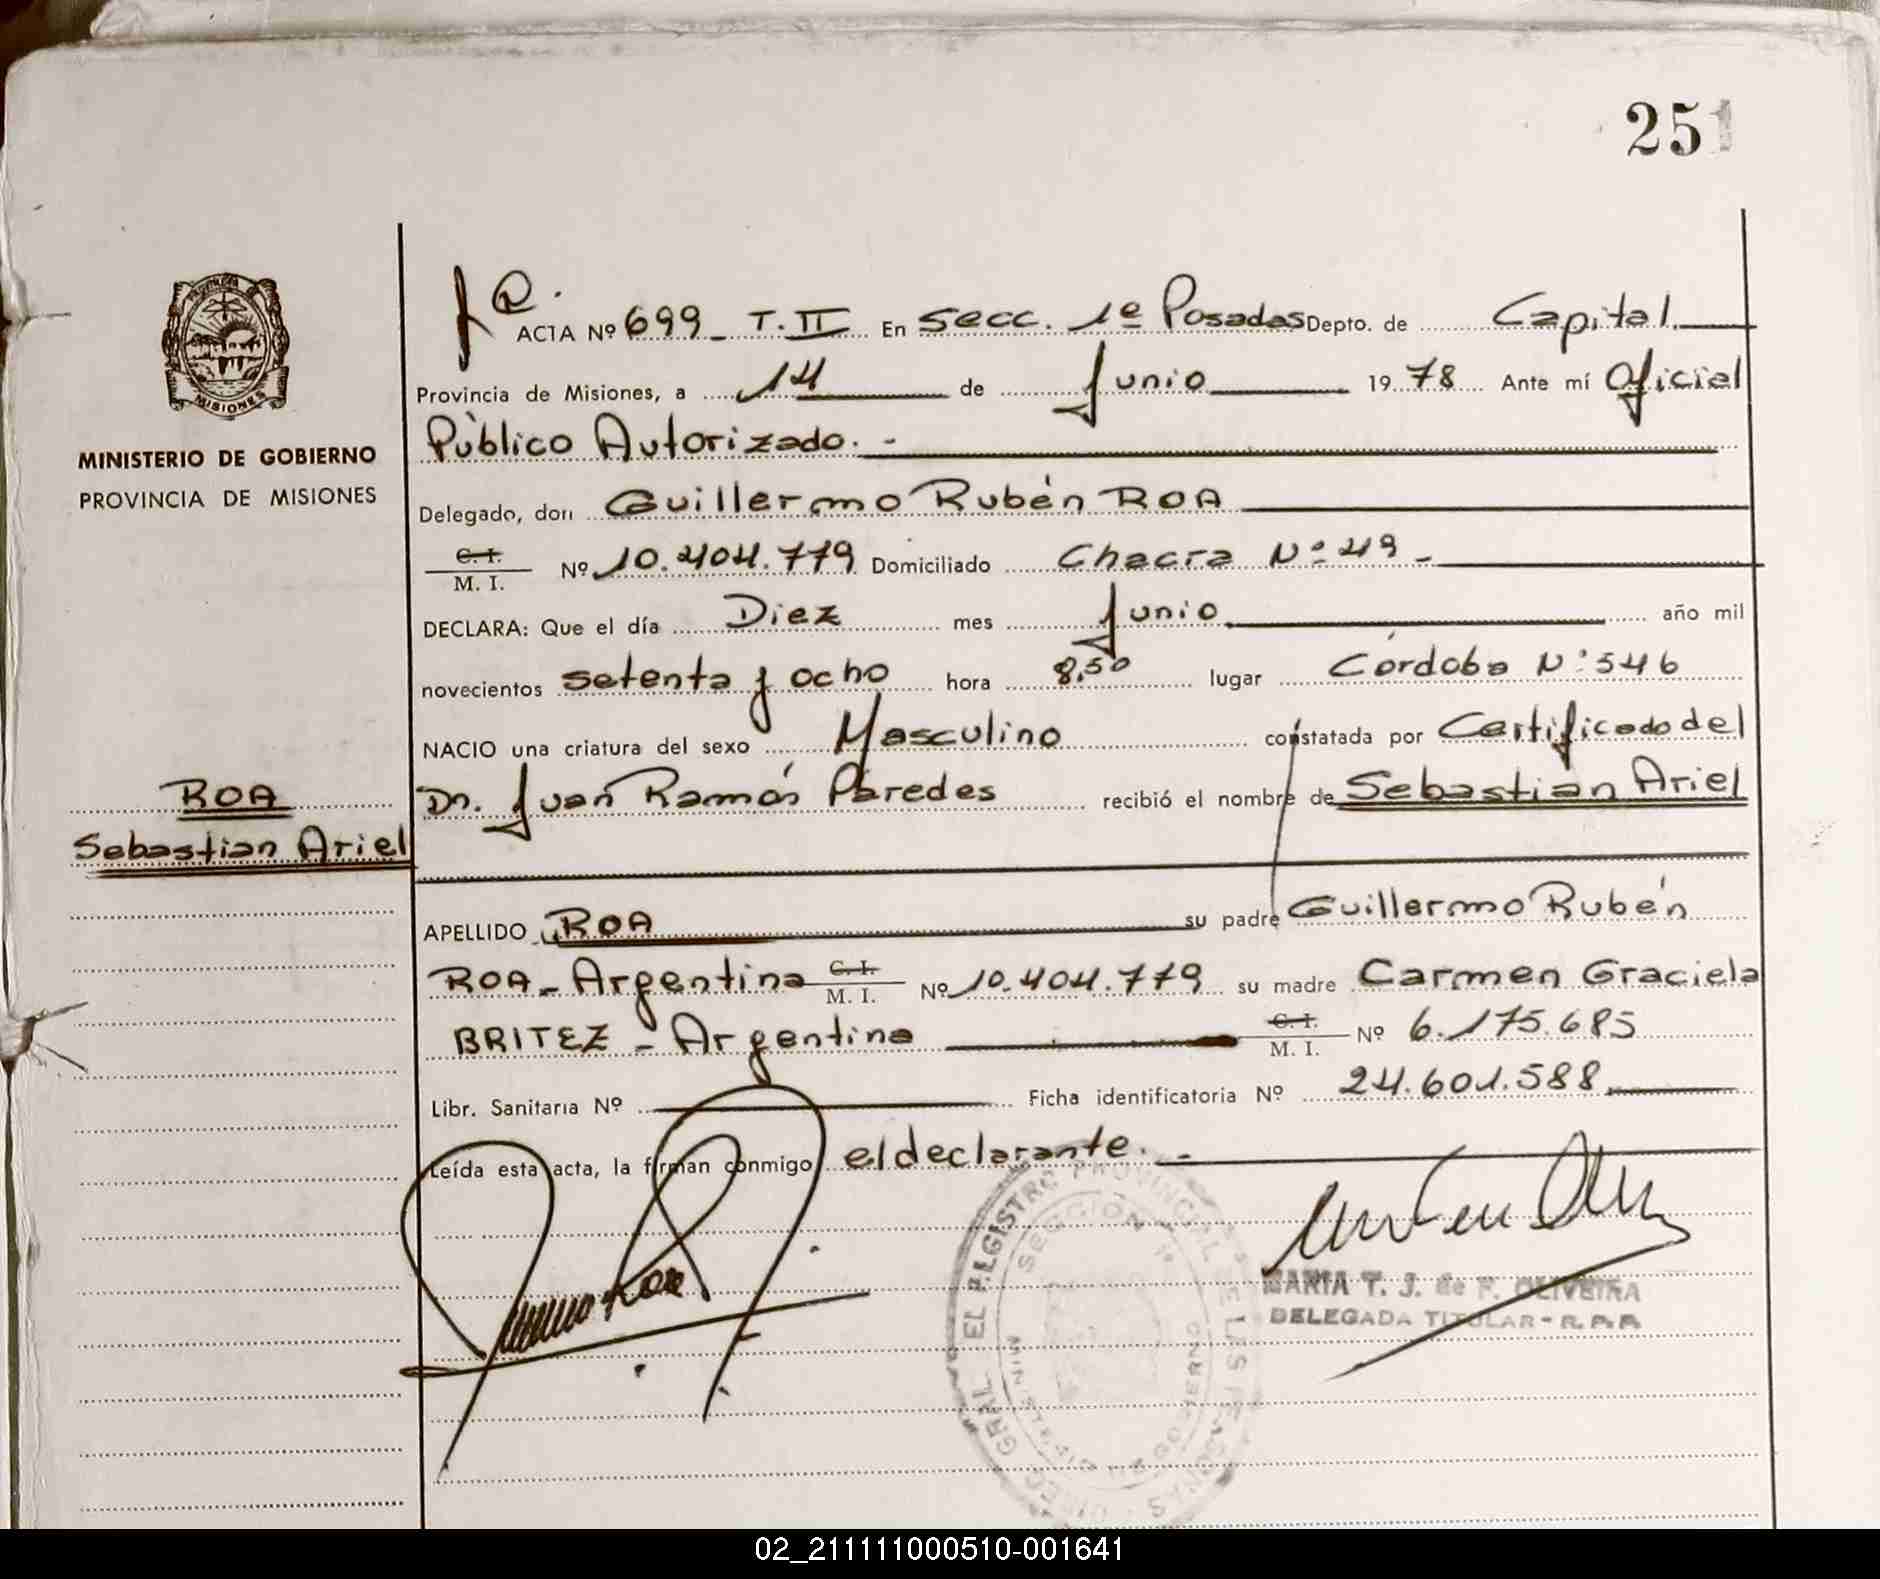 251
MISIONES
MINISTERIO DE GOBIERNO
PROVINCIA DE MISIONES
ROA
Sebastian Ariel
ACTA Nº 699 T. II En Secc. 1º Posadas Depto. de Capital.
Provincia de Misiones, a 14 de Junio 1978 Ante mí Oficial
Público Autorizado. -
Delegado, don Guillermo Rubén ROA
C. I.
M. I. Nº 10.404.779 Domiciliado Chacra Nº 49 -
DECLARA: Que el día Diez mes Junio año mil
novecientos setenta y ocho hora 8,50 lugar Córdoba Nº 546
NACIO una criatura del sexo Masculino constatada por Certificado del
Dr. Juan Ramón Paredes recibió el nombre de Sebastian Ariel
APELLIDO ROA su padre Guillermo Rubén
ROA - Argentina C. I. M. I. Nº 10.404.779 su madre Carmen Graciela
BRITEZ - Argentina C. I. M. I. Nº 6.175.685
Libr. Sanitaria Nº Ficha identificatoria Nº 24.601.588
Leída esta acta, la firman conmigo el declarante. -
MARIA T. J. de F. OLIVEIRA
DELEGADA TITULAR - R.P.P.
REGISTRO PROVINCIAL DE LAS PERSONAS
SECCION 1º
MINISTERIO DE GOBIERNO
02_211111000510-001641